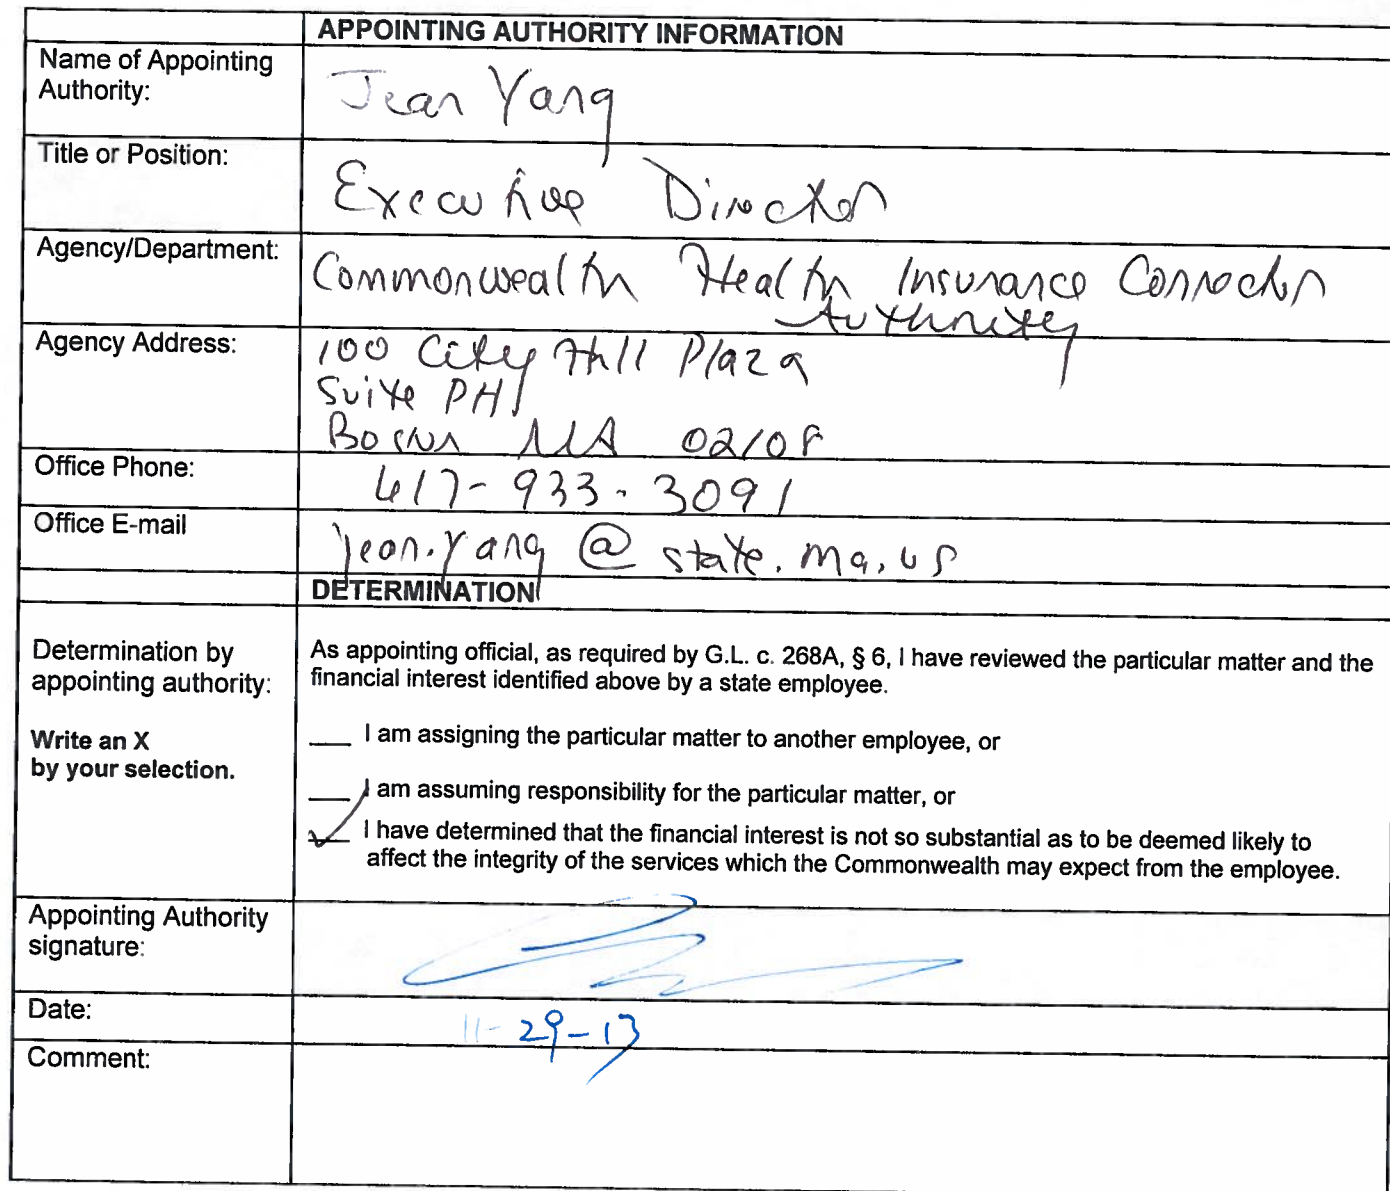 APPOINTING AUTHORITY INFORMATION
Name of Appointing
Authority:
Jean Yang
Title or Position:
Executive Director
Agency/Department:
Commonwealth Health Insurance Connector
Authority
Agency Address:
100 City Hall Plaza
Suite PH1
Boston MA 02108
Office Phone:
617-933-3091
Office E-mail
jean.yang@state.ma.us
DETERMINATION
Determination by
appointing authority:
Write an X
by your selection.
As appointing official, as required by G.L. c. 268A, § 6, I have reviewed the particular matter and the
financial interest identified above by a state employee.
___ I am assigning the particular matter to another employee, or
___ I am assuming responsibility for the particular matter, or
✓ I have determined that the financial interest is not so substantial as to be deemed likely to
affect the integrity of the services which the Commonwealth may expect from the employee.
Appointing Authority
signature:
Date:
11-29-13
Comment: